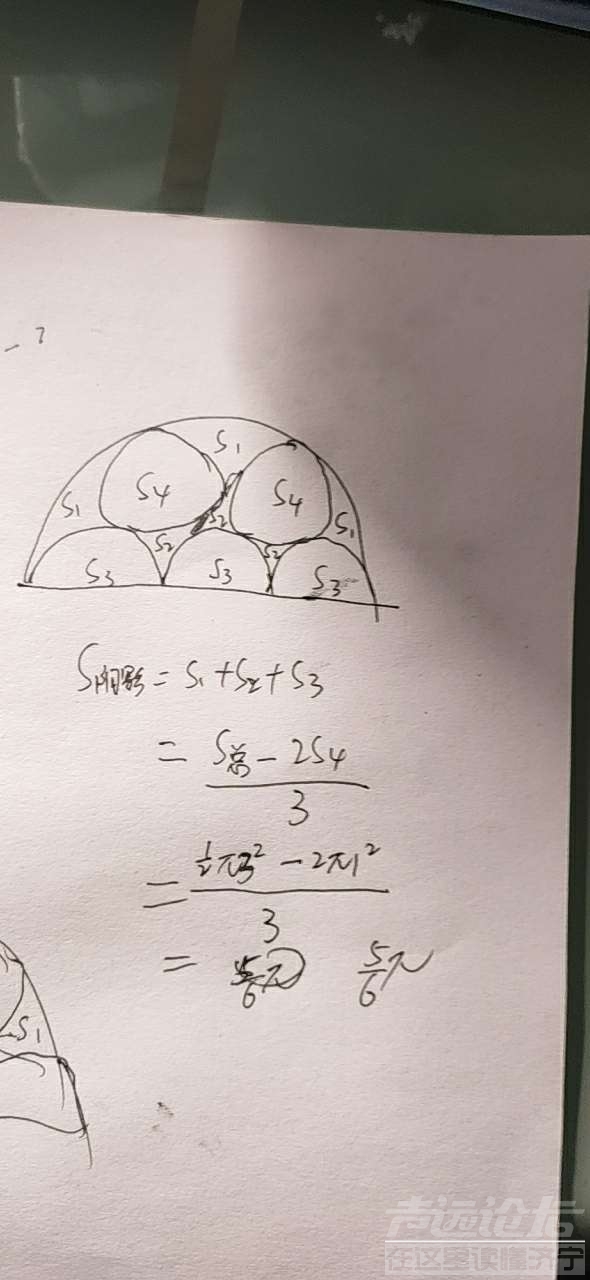 S1
S4
S4
S1
S1
S2
S2
S2
S3
S3
S3
S阴影 = S1 + S2 + S3
= S总 - 2S4
3
= ½π3² - 2π1²
3
= 5/6 π 5/6 π
S1
声远论坛
在这里读懂济宁